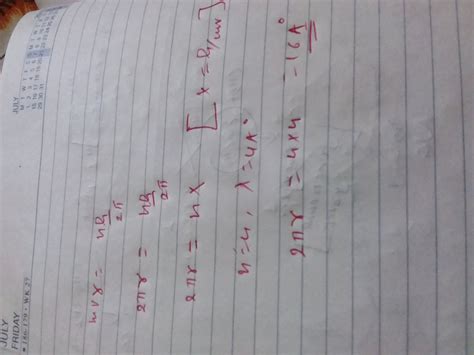 JULY
FRIDAY
186-179 • WK 27
JULY
mvr = nh/2π
2πr = nh/2π
2πr = nλ [λ = h/mv]
n=4, λ=4A°
2πr = 4×4 = 16A°